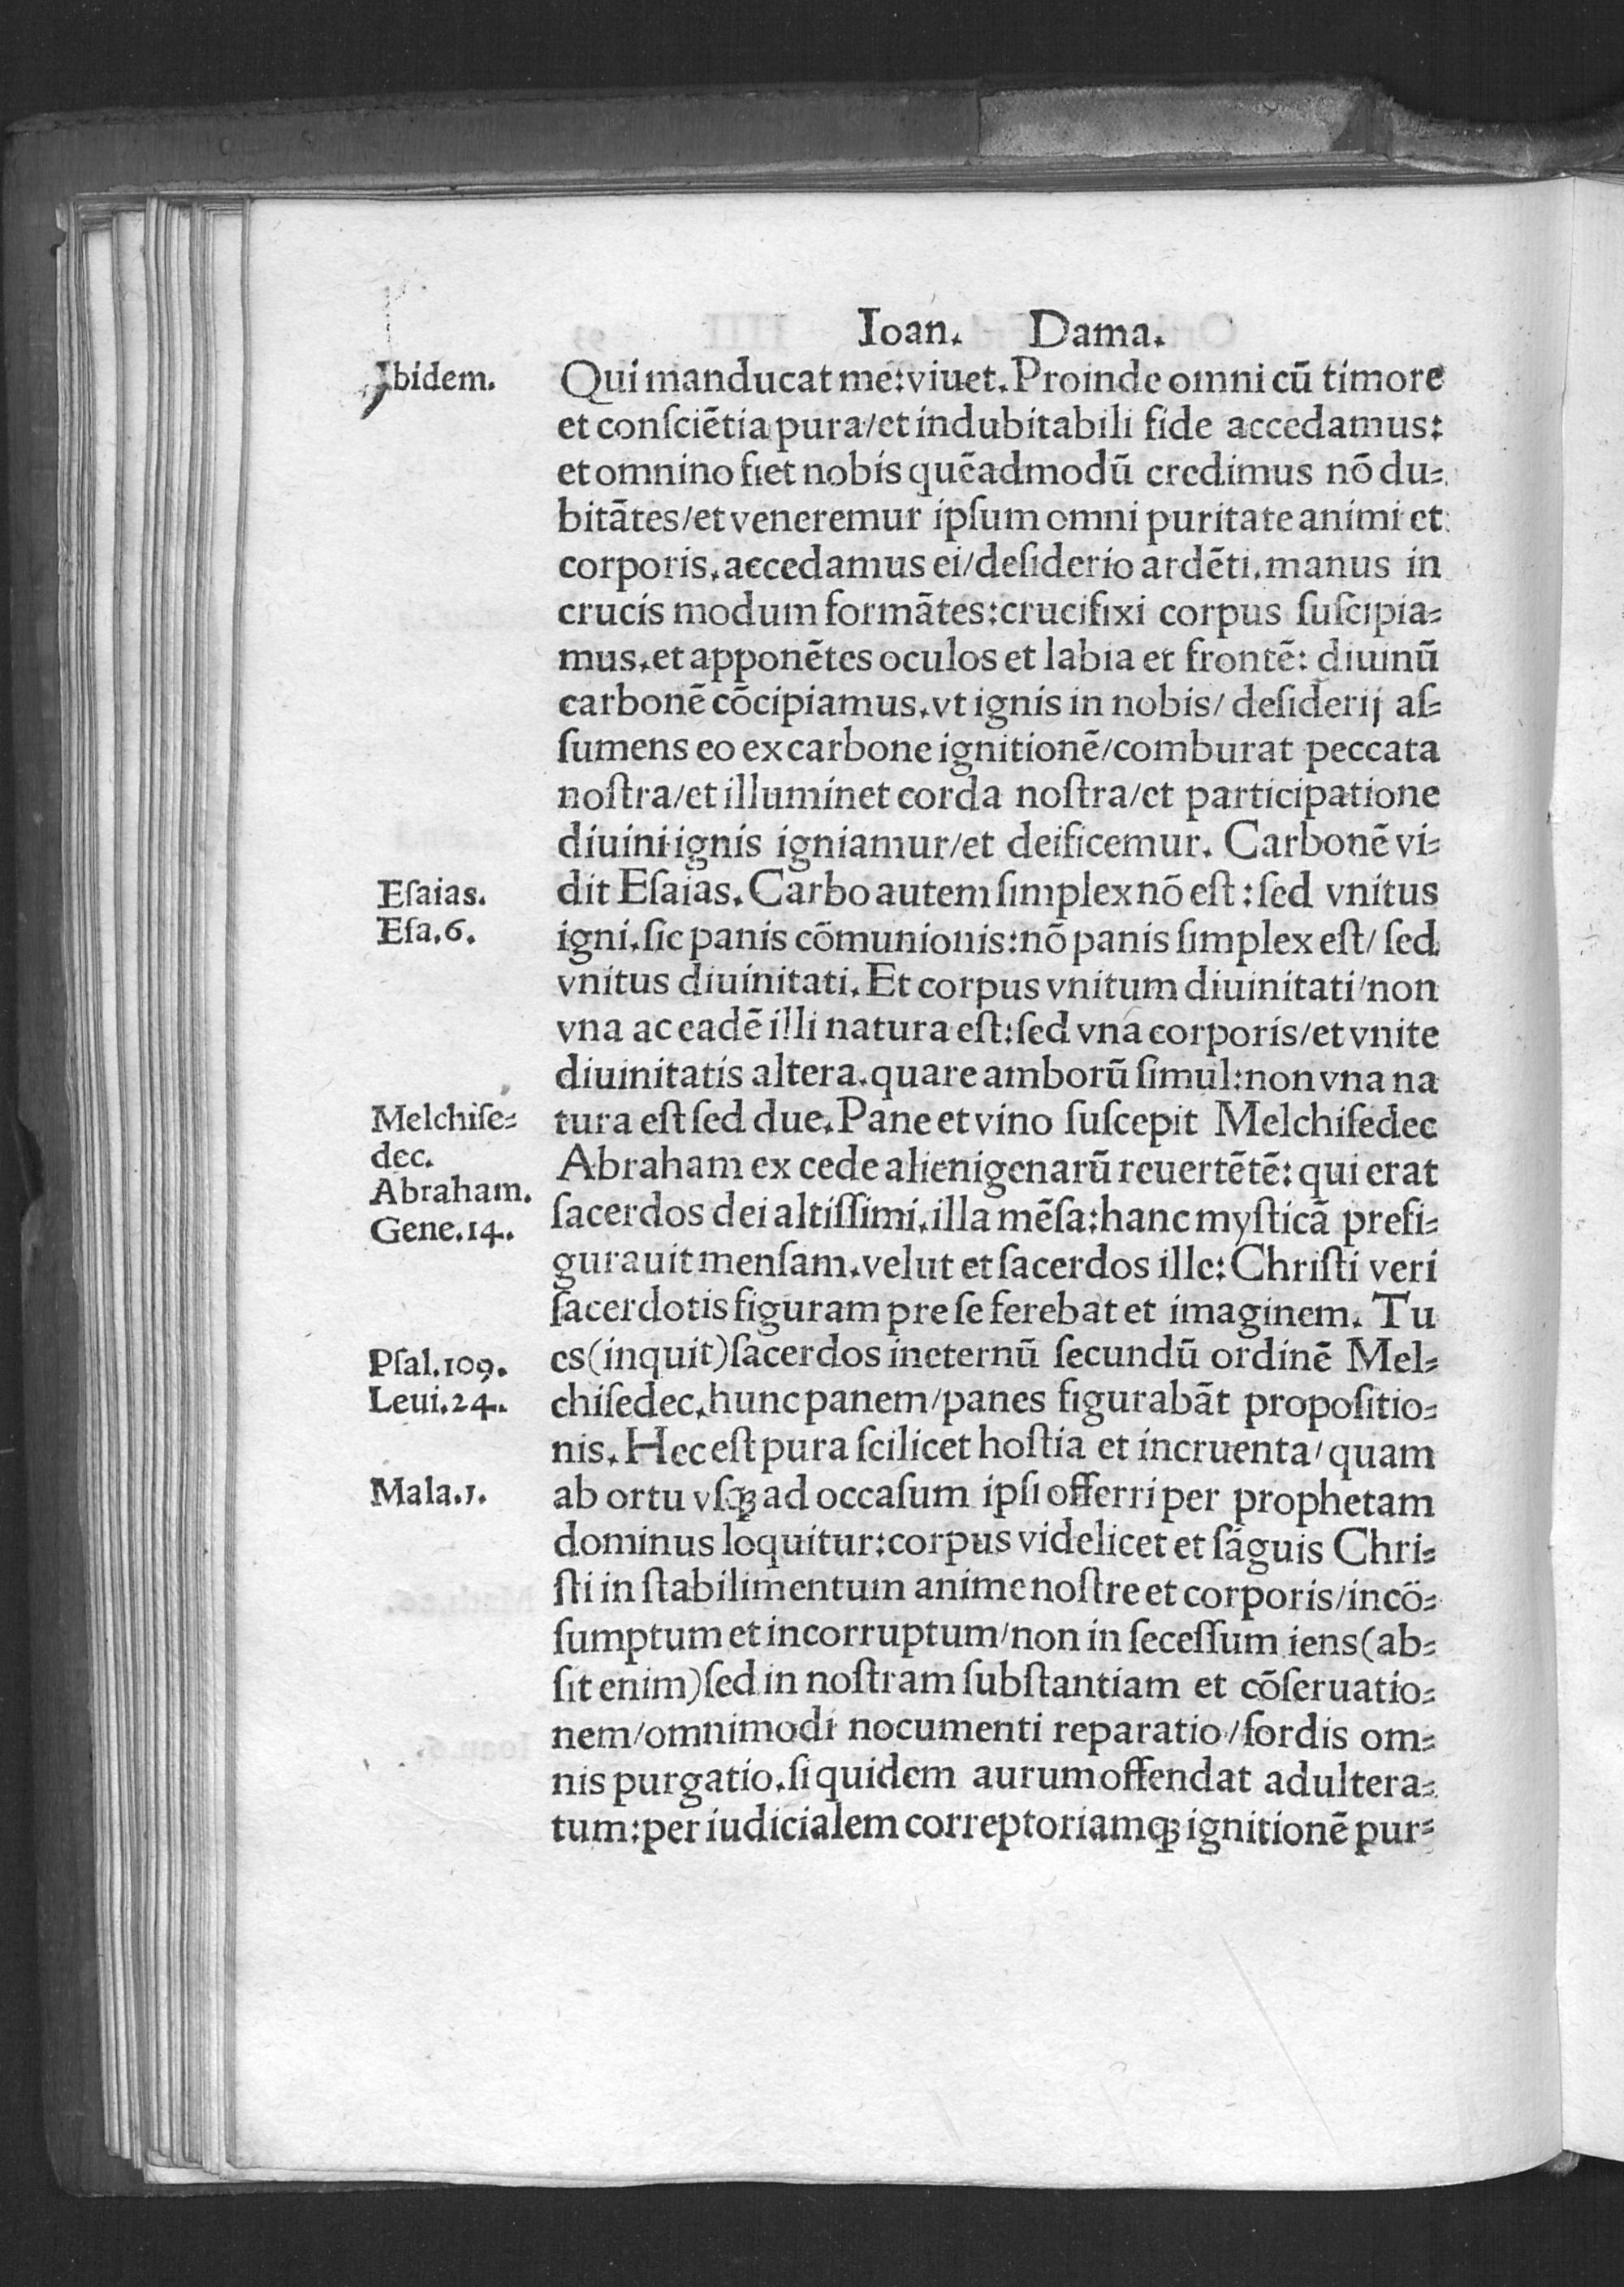 Ioan. Dama.
Ibidem.
Qui manducat me:viuet. Proinde omni cū timore
et conſciētia pura/et indubitabili fide accedamus:
et omnino fiet nobis quēadmodū credimus nō du⸗
bitātes/et veneremur ipſum omni puritate animi et
corporis. accedamus ei/deſiderio ardēti. manus in
crucis modum formātes:crucifixi corpus ſuſcipia⸗
mus. et apponētes oculos et labia et frontē: diuinū
carbonē cōcipiamus. vt ignis in nobis/ deſiderij aſ⸗
ſumens eo ex carbone ignitionē/comburat peccata
noſtra/et illuminet corda noſtra/et participatione
diuini ignis igniamur/et deificemur. Carbonē vi⸗
Eſaias.
dit Eſaias. Carbo autem ſimplex nō eſt:ſed vnitus
Eſa.6.
igni. ſic panis cōmunionis:nō panis ſimplex eſt/ ſed
vnitus diuinitati. Et corpus vnitum diuinitati/non
vna ac eadē illi natura eſt:ſed vna corporis/et vnite
diuinitatis altera. quare amborū ſimul:non vna na
Melchiſe⸗
tura eſt ſed due. Pane et vino ſuſcepit Melchiſedec
dec.
Abraham ex cede alienigenarū reuertētē: qui erat
Abraham.
ſacerdos dei altiſſimi. illa mēſa:hanc myſticā prefi⸗
Gene.14.
gurauit menſam. velut et ſacerdos ille: Chriſti veri
ſacerdotis figuram pre ſe ferebat et imaginem. Tu
Pſal.109.
es(inquit)ſacerdos ineternū ſecundū ordinē Mel⸗
Leui.24.
chiſedec. hunc panem/panes figurabāt propoſitio⸗
nis. Hec eſt pura ſcilicet hoſtia et incruenta/ quam
Mala.1.
ab ortu vſqꝫ ad occaſum ipſi offerri per prophetam
dominus loquitur:corpus videlicet et ſāguis Chri⸗
ſti in ſtabilimentum anime noſtre et corporis/incō⸗
ſumptum et incorruptum/non in ſeceſſum iens(ab⸗
ſit enim)ſed in noſtram ſubſtantiam et cōſeruatio⸗
nem/omnimodi nocumenti reparatio/ſordis om⸗
nis purgatio. ſi quidem aurum offendat adultera⸗
tum:per iudicialem correptoriamqꝫ ignitionē pur⸗